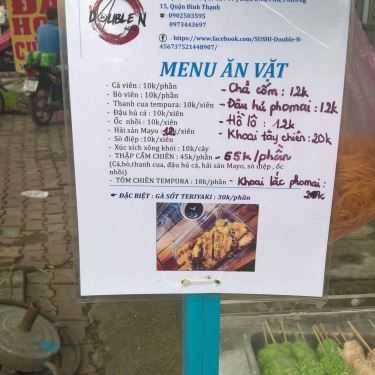 DOUBLE N
15, Quận Bình Thạnh
0902503595
0973443697
https://www.facebook.com/SUSHI-Double-N-
456737521448907/
MENU ĂN VẶT
- Cá viên : 10k/phần
- Bò viên : 10k/phần
- Thanh cua tempura : 10k/xiên
- Đậu hủ cá : 10k/xiên
- Ốc nhồi : 10k/xiên
- Hải sản Mayo : 12k/xiên
- Sò điệp : 10k/xiên
- Xúc xích xông khói : 10k/cây
- THẬP CẨM CHIÊN : 45k/phần - 55k/phần
(Cá,bò,thanh cua, đậu hủ cá, hải sản Mayo, sò điệp , ốc
nhồi)
- TÔM CHIÊN TEMPURA : 10k/phần
- Chả cốm : 12k
- Đậu hủ phomai : 12k
- Hồ lô : 12k
- Khoai tây chiên : 20k
- Khoai lắc phomai :
ĐẶC BIỆT : GÀ SỐT TERIYAKI : 30k/phần